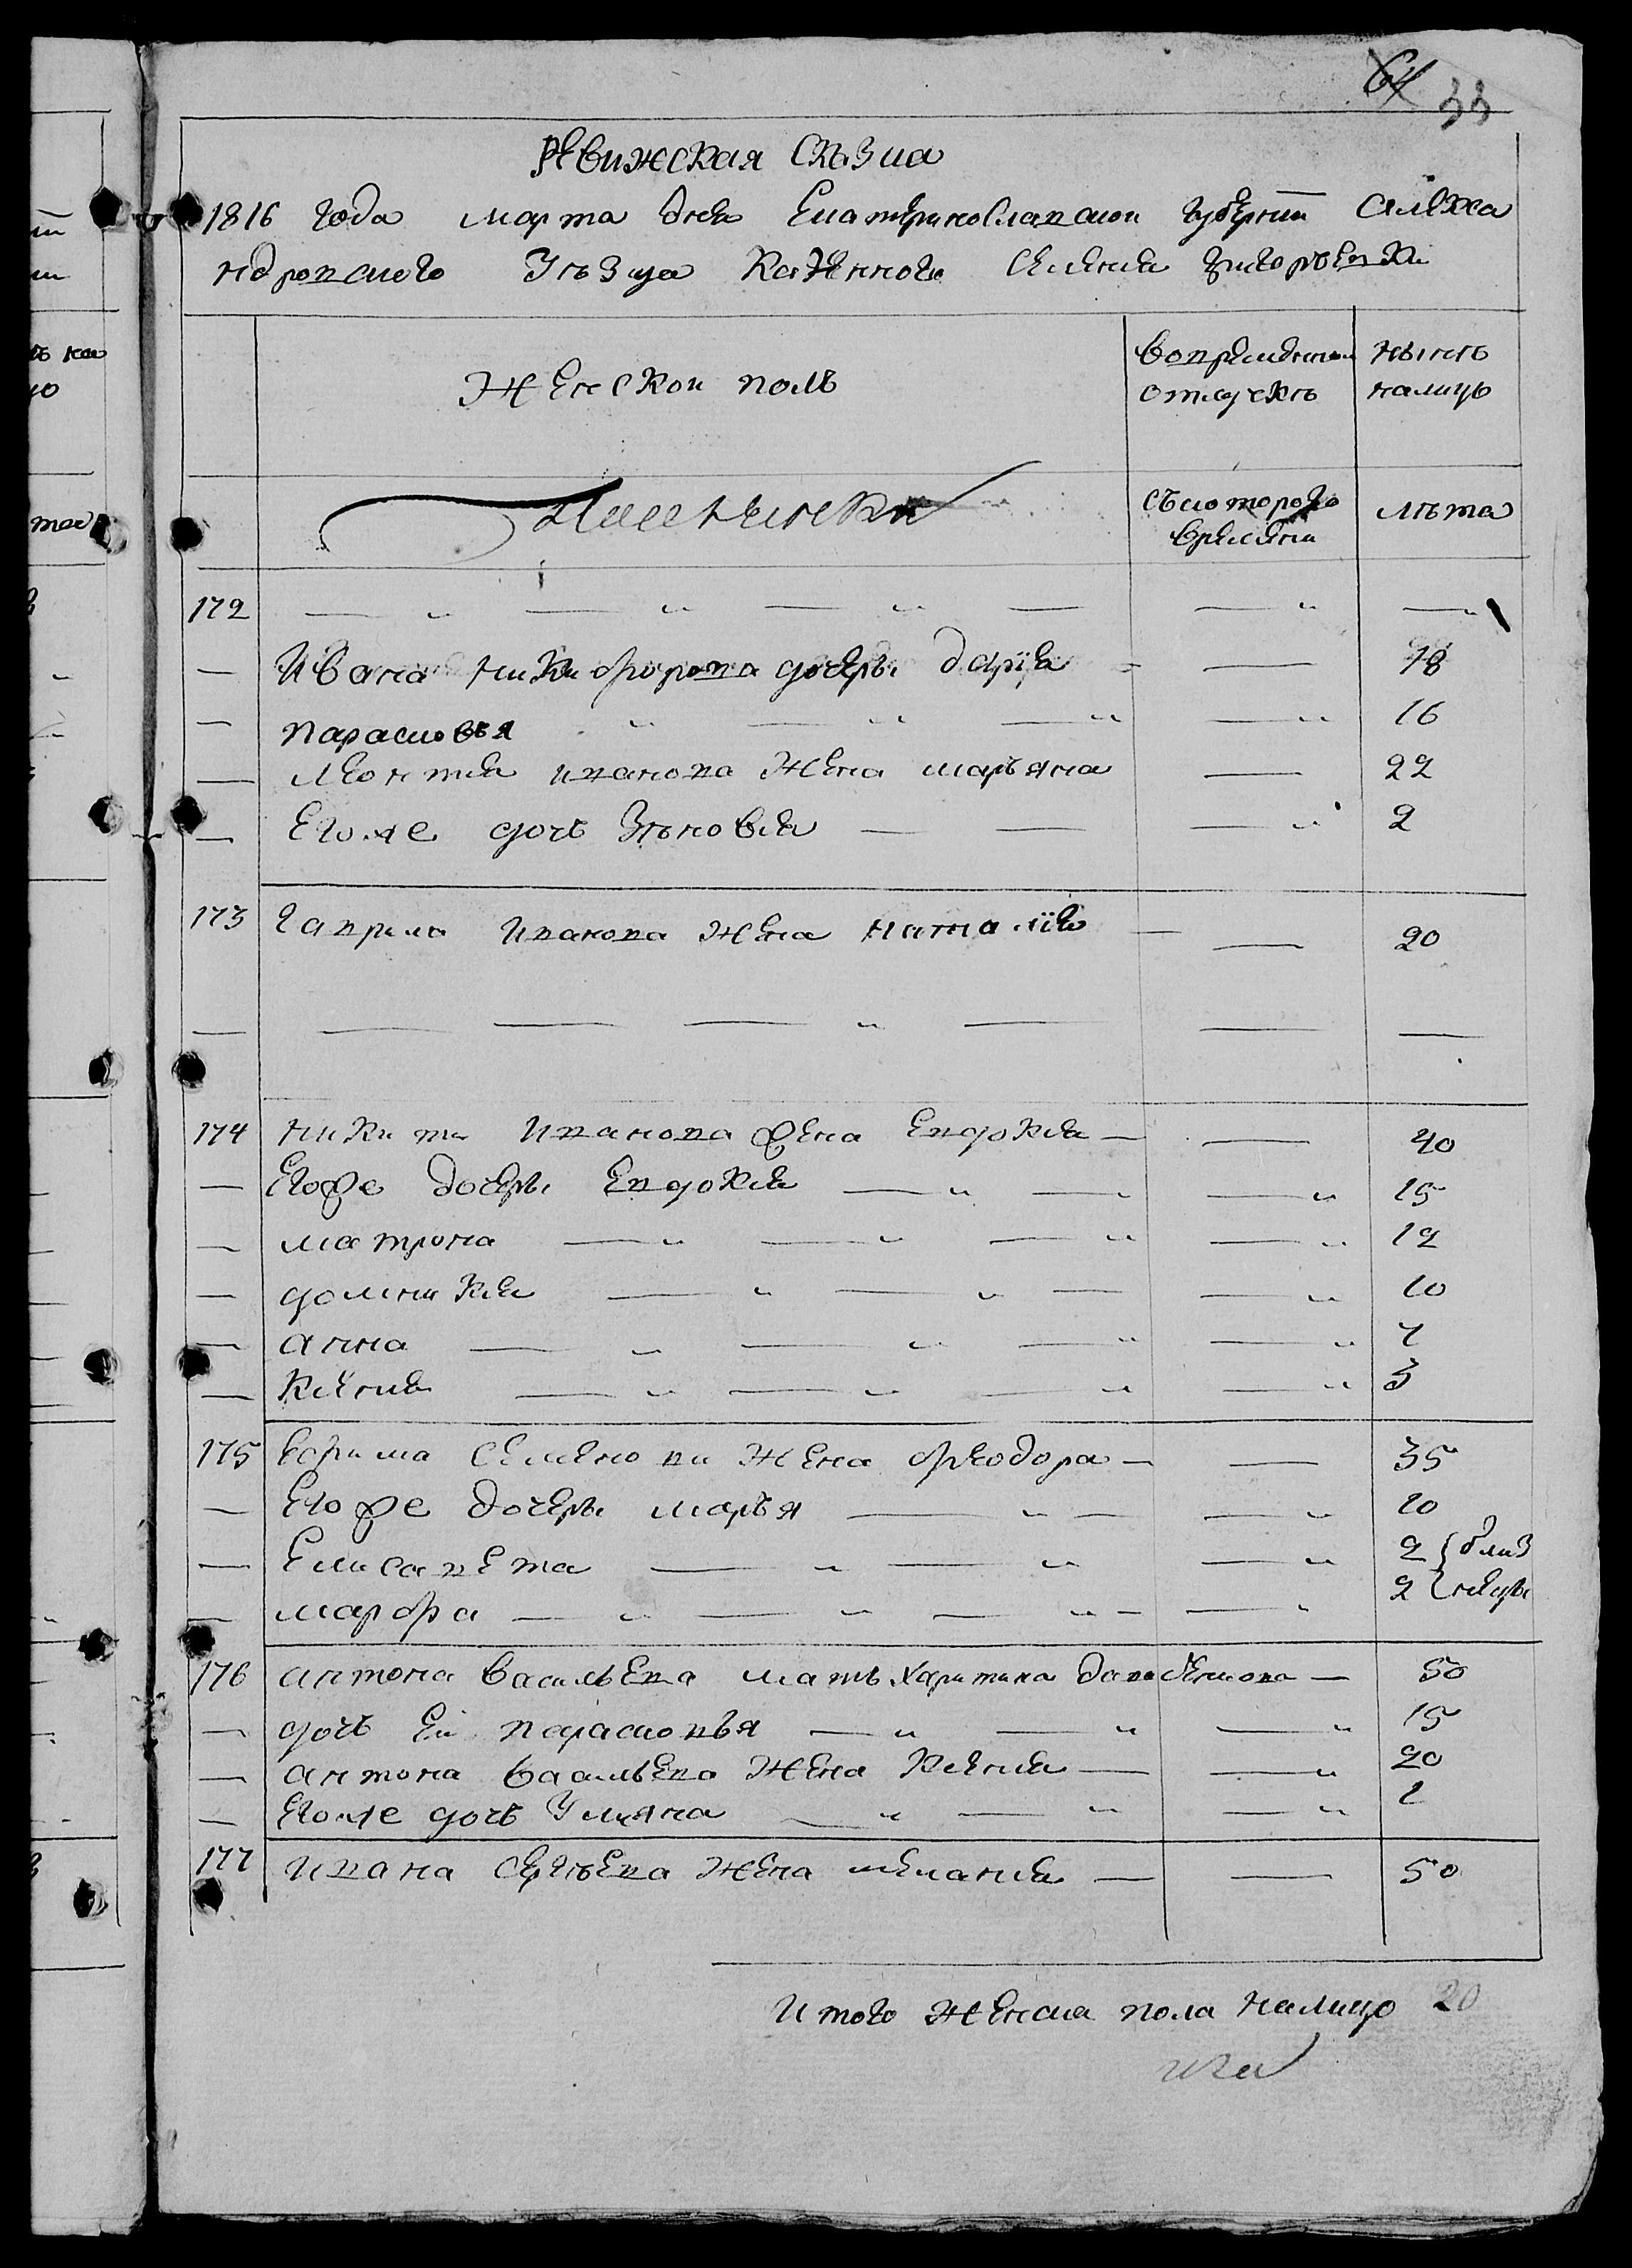 64 33
Ревижская Скъзка
1816 года марта дня Екатеринославской губернїи Алекса
ндровского Уъзда Казенного Селения Григорьевки
Женской полъ
Вовремянной Нынъ
отлучкъ налицо
съкоторого лъта
времяни
172
— Ивана Никифорова дочери Дарїя — 18
— Парасковья — 16
— Леонтия Иванова Жена марьяна — 22
— Егоже дочь Зъновия — 2
173 Гаврила Иванова Жена Наталїя — 20
174 Никити Иванова жена Евдокия — 40
— Егоже дочери Евдокия — 15
— матрона — 12
— домникия — 10
— анна — 7
— Ксения — 3
175 Ефима Семенови Жена феодора — 35
— Егоже дочери марья — 10
— Елисавета — 2 } близ
— марфа — 2 } нецы
176 антона васильева мать Харитина — 50
— дочь Ей парасковья — 15
— антона васильева Жена Ксения — 20
— Егоже дочь Уляна — 1
177 ивана Сергъева Жена мелания — 50
Итого Женска пола налицо 20